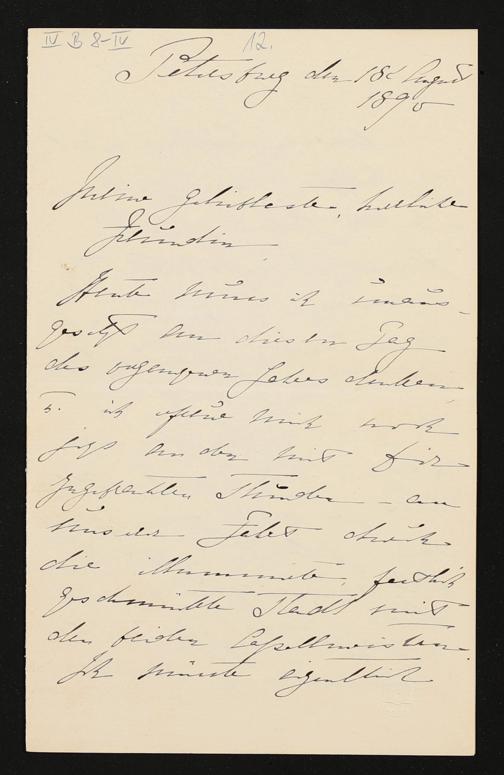 IV B 8-IV 12.
Petersburg den 18t August
1890
Meine geliebteste, herrliche
Freundin,
Heute muss ich unaus-
gesetzt an diesen Tag
des vergangenen Jahres denken
u. ich freue mich noch
jetzt an den mit Dir
zugebrachten Stunden – an
unsere Fahrt durch
die illuminirte, festlich
geschmückte Stadt mit
den beiden Capellmeistern.
Ich müsste eigentlich